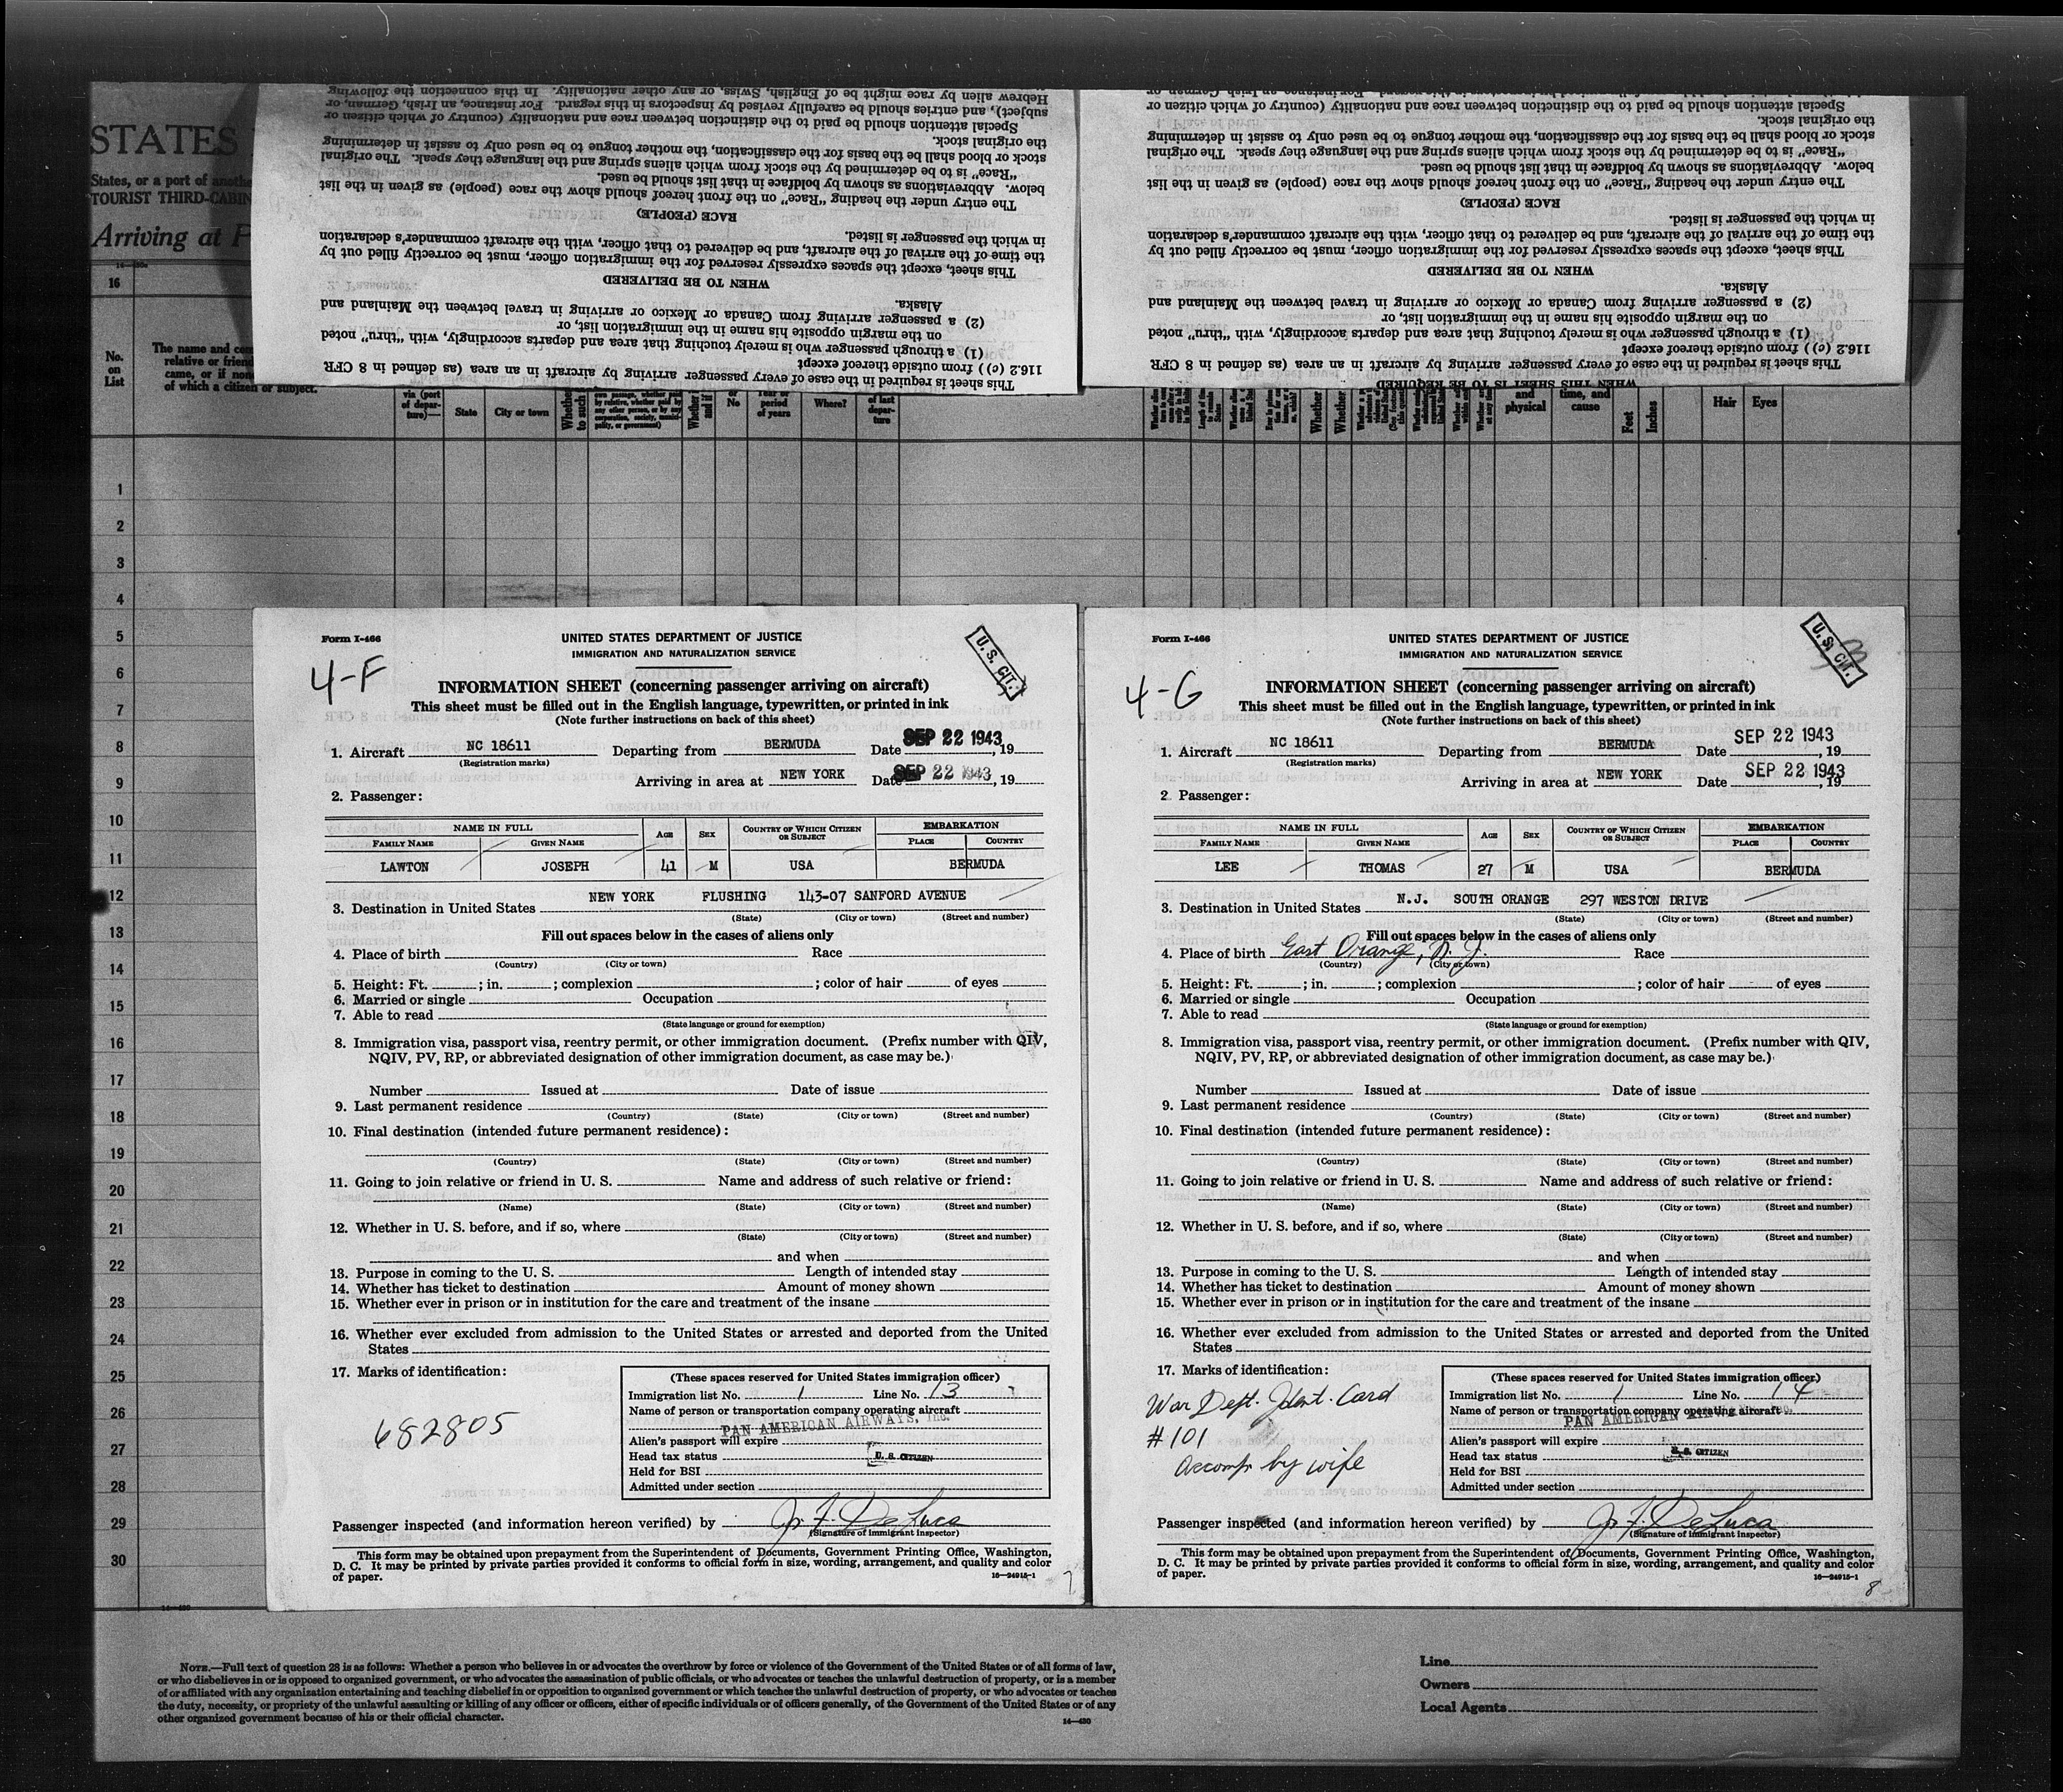 STATES
States, or a port of another
TOURIST THIRD-CABIN
Arriving at
16
No.
on
List
of which a citizen or subject.
via (port
of depar-
ture)—
State
City or town
No
period
of years
Where?
of last
depar-
ture
and
physical
time, and
cause
Feet
Inches
Hair
Eyes
1
2
3
4
5
6
7
8
9
10
11
12
13
14
15
16
17
18
19
20
21
22
23
24
25
26
27
28
29
30
This sheet is required in the case of every passenger arriving by aircraft in an area (as defined in 8 CFR
116.2 (c) ) from outside thereof except
(1) a through passenger who is merely touching that area and departs accordingly, with “thru” noted
on the margin opposite his name in the immigration list, or
(2) a passenger arriving from Canada or Mexico or arriving in travel between the Mainland and
Alaska.
WHEN TO BE DELIVERED
This sheet, except the spaces expressly reserved for the immigration officer, must be correctly filled out by
the time of the arrival of the aircraft, and be delivered to that officer, with the aircraft commander’s declaration
in which the passenger is listed.
RACE (PEOPLE)
The entry under the heading “Race” on the front hereof should show the race (people) as given in the list
below. Abbreviations as shown by boldface in that list should be used.
“Race” is to be determined by the stock from which aliens spring and the language they speak. The original
stock or blood shall be the basis for the classification, the mother tongue to be used only to assist in determining
the original stock.
Special attention should be paid to the distinction between race and nationality (country of which citizen or
subject), and entries should be carefully revised by inspectors in this regard. For instance, an Irish, German, or
Hebrew alien by race might be of English, Swiss, or any other nationality. In this connection the following
WHEN THIS SHEET IS TO BE REQUIRED
This sheet is required in the case of every passenger arriving by aircraft in an area (as defined in 8 CFR
116.2 (c) ) from outside thereof except
(1) a through passenger who is merely touching that area and departs accordingly, with “thru” noted
on the margin opposite his name in the immigration list, or
(2) a passenger arriving from Canada or Mexico or arriving in travel between the Mainland and
Alaska.
WHEN TO BE DELIVERED
This sheet, except the spaces expressly reserved for the immigration officer, must be correctly filled out by
the time of the arrival of the aircraft, and be delivered to that officer, with the aircraft commander’s declaration
in which the passenger is listed.
RACE (PEOPLE)
The entry under the heading “Race” on the front hereof should show the race (people) as given in the list
below. Abbreviations as shown by boldface in that list should be used.
“Race” is to be determined by the stock from which aliens spring and the language they speak. The original
stock or blood shall be the basis for the classification, the mother tongue to be used only to assist in determining
the original stock.
Special attention should be paid to the distinction between race and nationality (country of which citizen or
Form I-466
UNITED STATES DEPARTMENT OF JUSTICE
IMMIGRATION AND NATURALIZATION SERVICE
U. S. CIT.
4-F
INFORMATION SHEET (concerning passenger arriving on aircraft)
This sheet must be filled out in the English language, typewritten, or printed in ink
(Note further instructions on back of this sheet)
1. Aircraft NC 18611 Departing from BERMUDA Date SEP 22 1943, 19
(Registration marks)
Arriving in area at NEW YORK Date SEP 22 1943, 19
2. Passenger:
NAME IN FULL AGE SEX COUNTRY OF WHICH CITIZEN OR SUBJECT EMBARKATION
FAMILY NAME GIVEN NAME PLACE COUNTRY
LAWTON JOSEPH 41 M USA BERMUDA
NEW YORK FLUSHING 143-07 SANFORD AVENUE
3. Destination in United States
(State) (City or town) (Street and number)
Fill out spaces below in the cases of aliens only
4. Place of birth Race
(Country) (City or town)
5. Height: Ft. ; in. ; complexion ; color of hair of eyes
6. Married or single Occupation
7. Able to read
(State language or ground for exemption)
8. Immigration visa, passport visa, reentry permit, or other immigration document. (Prefix number with QIV,
NQIV, PV, RP, or abbreviated designation of other immigration document, as case may be.)
Number Issued at Date of issue
9. Last permanent residence
(Country) (State) (City or town) (Street and number)
10. Final destination (intended future permanent residence):
(Country) (State) (City or town) (Street and number)
11. Going to join relative or friend in U. S. Name and address of such relative or friend:
(Name) (State) (City or town) (Street and number)
12. Whether in U. S. before, and if so, where
(State) (City or town) (Street and number)
and when
13. Purpose in coming to the U. S. Length of intended stay
14. Whether has ticket to destination Amount of money shown
15. Whether ever in prison or in institution for the care and treatment of the insane
16. Whether ever excluded from admission to the United States or arrested and deported from the United
States
17. Marks of identification:
682805
(These spaces reserved for United States immigration officer)
Immigration list No. 1 Line No. 13
Name of person or transportation company operating aircraft
PAN AMERICAN AIRWAYS, Inc.
Alien's passport will expire
Head tax status U. S. CITIZEN
Held for BSI
Admitted under section
Passenger inspected (and information hereon verified) by J. F. DeLuca
(Signature of immigrant inspector)
This form may be obtained upon prepayment from the Superintendent of Documents, Government Printing Office, Washington,
D. C. It may be printed by private parties provided it conforms to official form in size, wording, arrangement, and quality and color
of paper.
16—24915-1
7
Form I-466
UNITED STATES DEPARTMENT OF JUSTICE
IMMIGRATION AND NATURALIZATION SERVICE
U. S. CIT.
4-G
INFORMATION SHEET (concerning passenger arriving on aircraft)
This sheet must be filled out in the English language, typewritten, or printed in ink
(Note further instructions on back of this sheet)
1. Aircraft NC 18611 Departing from BERMUDA Date SEP 22 1943, 19
(Registration marks)
Arriving in area at NEW YORK Date SEP 22 1943, 19
2 Passenger:
NAME IN FULL AGE SEX COUNTRY OF WHICH CITIZEN OR SUBJECT EMBARKATION
FAMILY NAME GIVEN NAME PLACE COUNTRY
LEE THOMAS 27 M USA BERMUDA
N.J. SOUTH ORANGE 297 WESTON DRIVE
3. Destination in United States
(State) (City or town) (Street and number)
Fill out spaces below in the cases of aliens only
4. Place of birth East Orange, N. J. Race
(Country) (City or town)
5. Height: Ft. ; in. ; complexion ; color of hair of eyes
6. Married or single Occupation
7. Able to read
(State language or ground for exemption)
8. Immigration visa, passport visa, reentry permit, or other immigration document. (Prefix number with QIV,
NQIV, PV, RP, or abbreviated designation of other immigration document, as case may be.)
Number Issued at Date of issue
9. Last permanent residence
(Country) (State) (City or town) (Street and number)
10. Final destination (intended future permanent residence):
(Country) (State) (City or town) (Street and number)
11. Going to join relative or friend in U. S. Name and address of such relative or friend:
(Name) (State) (City or town) (Street and number)
12. Whether in U. S. before, and if so, where
(State) (City or town) (Street and number)
and when
13. Purpose in coming to the U. S. Length of intended stay
14. Whether has ticket to destination Amount of money shown
15. Whether ever in prison or in institution for the care and treatment of the insane
16. Whether ever excluded from admission to the United States or arrested and deported from the United
States
17. Marks of identification:
War Dept. Ident. Card
#101
Accomp by wife
(These spaces reserved for United States immigration officer)
Immigration list No. 1 Line No. 14
Name of person or transportation company operating aircraft
PAN AMERICAN AIRWAYS, Inc.
Alien's passport will expire
Head tax status U. S. CITIZEN
Held for BSI
Admitted under section
Passenger inspected (and information hereon verified) by J. F. DeLuca
(Signature of immigrant inspector)
This form may be obtained upon prepayment from the Superintendent of Documents, Government Printing Office, Washington,
D. C. It may be printed by private parties provided it conforms to official form in size, wording, arrangement, and quality and color
of paper.
16—24915-1
8
NOTE.—Full text of question 28 is as follows: Whether a person who believes in or advocates the overthrow by force or violence of the Government of the United States or of all forms of law,
or who disbelieves in or is opposed to organized government, or who advocates the assassination of public officials, or who advocates or teaches the unlawful destruction of property, or is a member
of or affiliated with any organization entertaining and teaching disbelief in or opposition to organized government or which teaches the unlawful destruction of property, or who advocates or teaches
the duty, necessity, or propriety of the unlawful assaulting or killing of any officer or officers, either of specific individuals or of officers generally, of the Government of the United States or of any
other organized government because of his or their official character.
14—430
Line
Owners
Local Agents